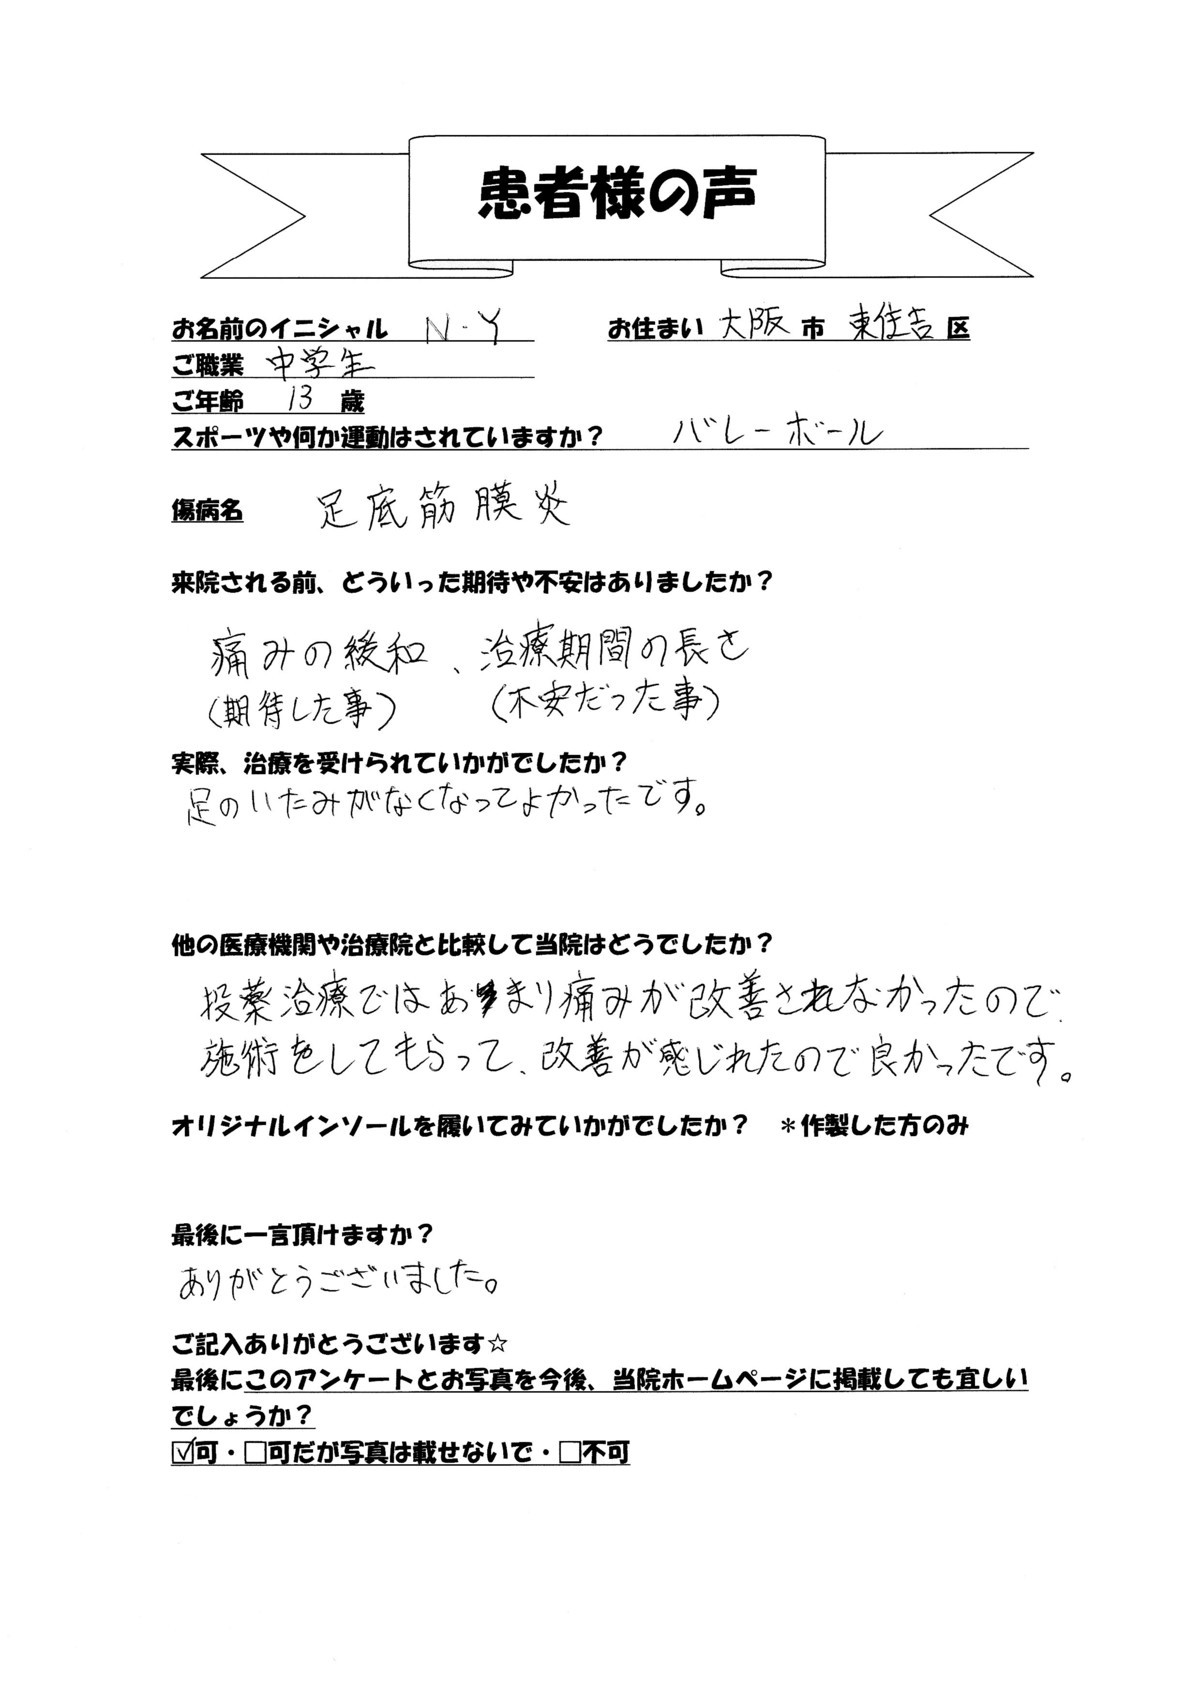 患者様の声
お名前のイニシャル N.Y お住まい 大阪 市 東住吉 区
ご職業 中学生
ご年齢 13 歳
スポーツや何か運動はされていますか? バレーボール
傷病名 足底筋膜炎
来院される前、どういった期待や不安はありましたか?
痛みの緩和、治療期間の長さ
(期待した事) (不安だった事)
実際、治療を受けられていかがでしたか?
足のいたみがなくなってよかったです。
他の医療機関や治療院と比較して当院はどうでしたか?
投薬治療ではあまり痛みが改善されなかったので、
施術をしてもらって、改善が感じれたので良かったです。
オリジナルインソールを履いてみていかがでしたか? *作製した方のみ
最後に一言頂けますか?
ありがとうございました。
ご記入ありがとうございます☆
最後にこのアンケートとお写真を今後、当院ホームページに掲載しても宜しい
でしょうか?
☑可・□可だが写真は載せないで・□不可